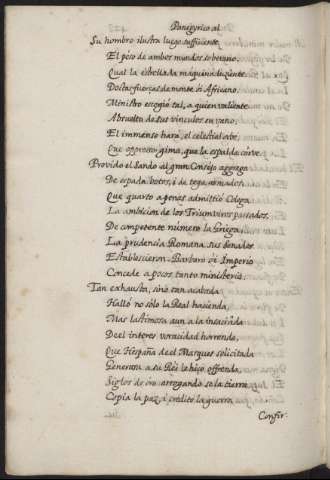 Panegyrico al
Su hombro ilustra luego sufficiente
El peso de ambos mundos soberano.
Qual la estrellada maquina luziente
Doctas fuerças de monte, si Africano.
Ministro escogió tal, a quien valiente
Absuelto de sus vinculos en vano,
El immenso hará, el celestial orbe
Que opreso gima, que la espalda corve.
Provido el Sando al gran Consejo aggrega
De espada votos, i de toga armados.
Que quarto apenas admittió Colega
La ambicion de los Triumviros passados.
De competente numero la Griega,
La prudencia Romana sus Senados
Establecieron. Barbaro oi Imperio
Concede a pocos tanto ministerio.
Tan exhausta, sino tan acabada
Halló no sólo la Real hazienda,
Mas lastimosa aun a la insaciada
Del interes voracidad horrenda,
Que Hespaña del Marques solicitada
Generosa a su Rei le hizo offrenda,
Siglos de oro arrogando se la tierra,
Copia la paz, i credito la guerra.
Confir-